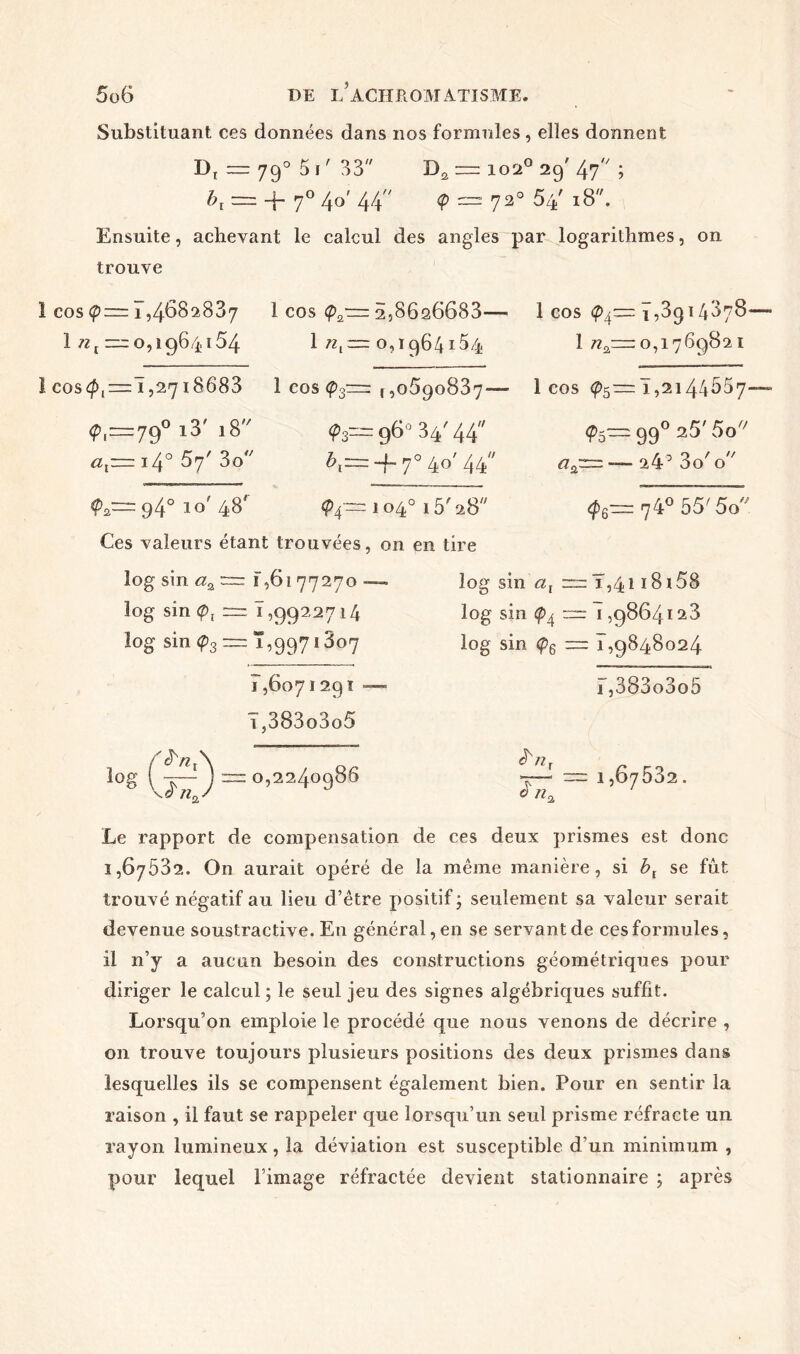 506 DE L'ACHROMATISME.
Substituant ces données dans nos formules, elles donnent
D₁ = 79° 51' 33" D₂ = 102° 29' 47" ;
b₁ = + 7° 40' 44" φ = 72° 54' 18".
Ensuite, achevant le calcul des angles par logarithmes, on
trouve
l cos φ = 1̅,4682837 l cos φ₂ = 2̅,8626683— l cos φ₄ = 1̅,3914378—
l n₁ = 0,1964154 l n₁ = 0,1964154 l n₂ = 0,1769821
l cos φ₁ = 1̅,2718683 l cos φ₃ = 1̅,0590837— l cos φ₅ = 1̅,2144557—
φ₁ = 79° 13' 18" φ₃ = 96° 34' 44" φ₅ = 99° 25' 50"
a₁ = 14° 57' 30" b₁ = + 7° 40' 44" a₂ = — 24° 30' 0"
φ₂ = 94° 10' 48" φ₄ = 104° 15' 28" φ₆ = 74° 55' 50"
Ces valeurs étant trouvées, on en tire
log sin a₂ = 1̅,6177270 — log sin a₁ = 1̅,4118158
log sin φ₁ = 1̅,9922714 log sin φ₄ = 1̅,9864123
log sin φ₃ = 1̅,9971307 log sin φ₆ = 1̅,9848024
1̅,6071291 — 1̅,3830305
1̅,3830305
log (δn₁/δn₂) = 0,2240986 δn₁/δn₂ = 1,67532.
Le rapport de compensation de ces deux prismes est donc
1,67532. On aurait opéré de la même manière, si b₁ se fût
trouvé négatif au lieu d'être positif; seulement sa valeur serait
devenue soustractive. En général, en se servant de ces formules,
il n'y a aucun besoin des constructions géométriques pour
diriger le calcul; le seul jeu des signes algébriques suffit.
Lorsqu'on emploie le procédé que nous venons de décrire,
on trouve toujours plusieurs positions des deux prismes dans
lesquelles ils se compensent également bien. Pour en sentir la
raison, il faut se rappeler que lorsqu'un seul prisme réfracte un
rayon lumineux, la déviation est susceptible d'un minimum,
pour lequel l'image réfractée devient stationnaire ; après